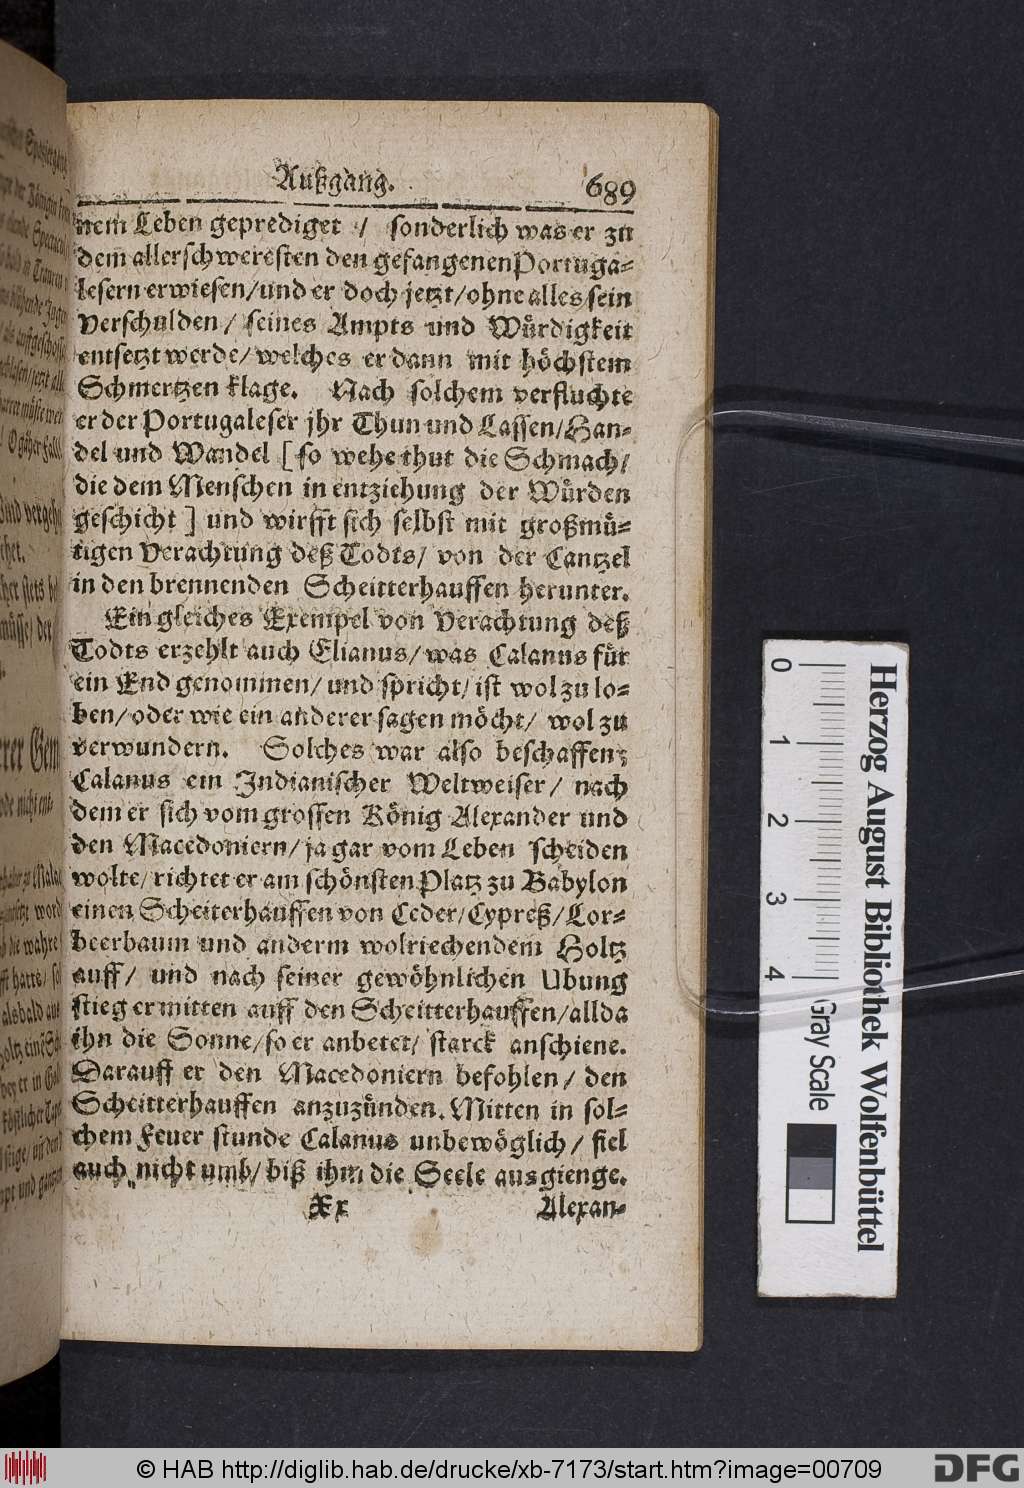 Außgang. 689
nem Leben geprediget / sonderlich was er zu
dem allerschweresten den gefangenen Portuga-
lesern erwiesen/und er doch jetzt/ohne alles/sein
Verschulden/ seines Ampts und Würdigkeit
entsetzt werde/welches er dann mit höchstem
Schmertzen klage. Nach solchem verfluchte
er der Portugaleser jhr Thun und Lassen/Han-
del und Wandel [so wehe thut die Schmach/
die dem Menschen in entziehung der Würden
geschicht] und wirfft sich selbst mit großmü-
tigen Verachtung deß Todts/ von der Cantzel
in den brennenden Scheitterhauffen herunter.
Ein gleiches Exempel von Verachtung deß
Todts erzehlt auch Elianus/was Calanus für
ein End genommen/und spricht/ist wol zu lo-
ben/oder wie ein anderer sagen möcht/ wol zu
verwundern. Solches war also beschaffen;
Calanus ein Indianischer Weltweiser/ nach
dem er sich vom grossen König Alexander und
den Macedoniern/ja gar vom Leben scheiden
wolte/richtet er am schönsten Platz zu Babylon
einen Scheiterhauffen von Ceder/Cypreß/Lor-
beerbaum und anderm wolriechendem Holtz
auff/ und nach seiner gewöhnlichen Ubung
stieg er mitten auff den Scheitterhauffen/allda
ihn die Sonne/so er anbetet/ starck anschiene.
Darauff er den Macedoniern befohlen/ den
Scheitterhauffen anzuzünden. Mitten in sol-
chem Feuer stunde Calanus unbewöglich/ fiel
auch nicht umb/biß ihm die Seele ausgienge.
Xx Alexan-
0 1 2 3 4
Gray Scale
Herzog August Bibliothek Wolfenbüttel
© HAB http://diglib.hab.de/drucke/xb-7173/start.htm?image=00709
DFG